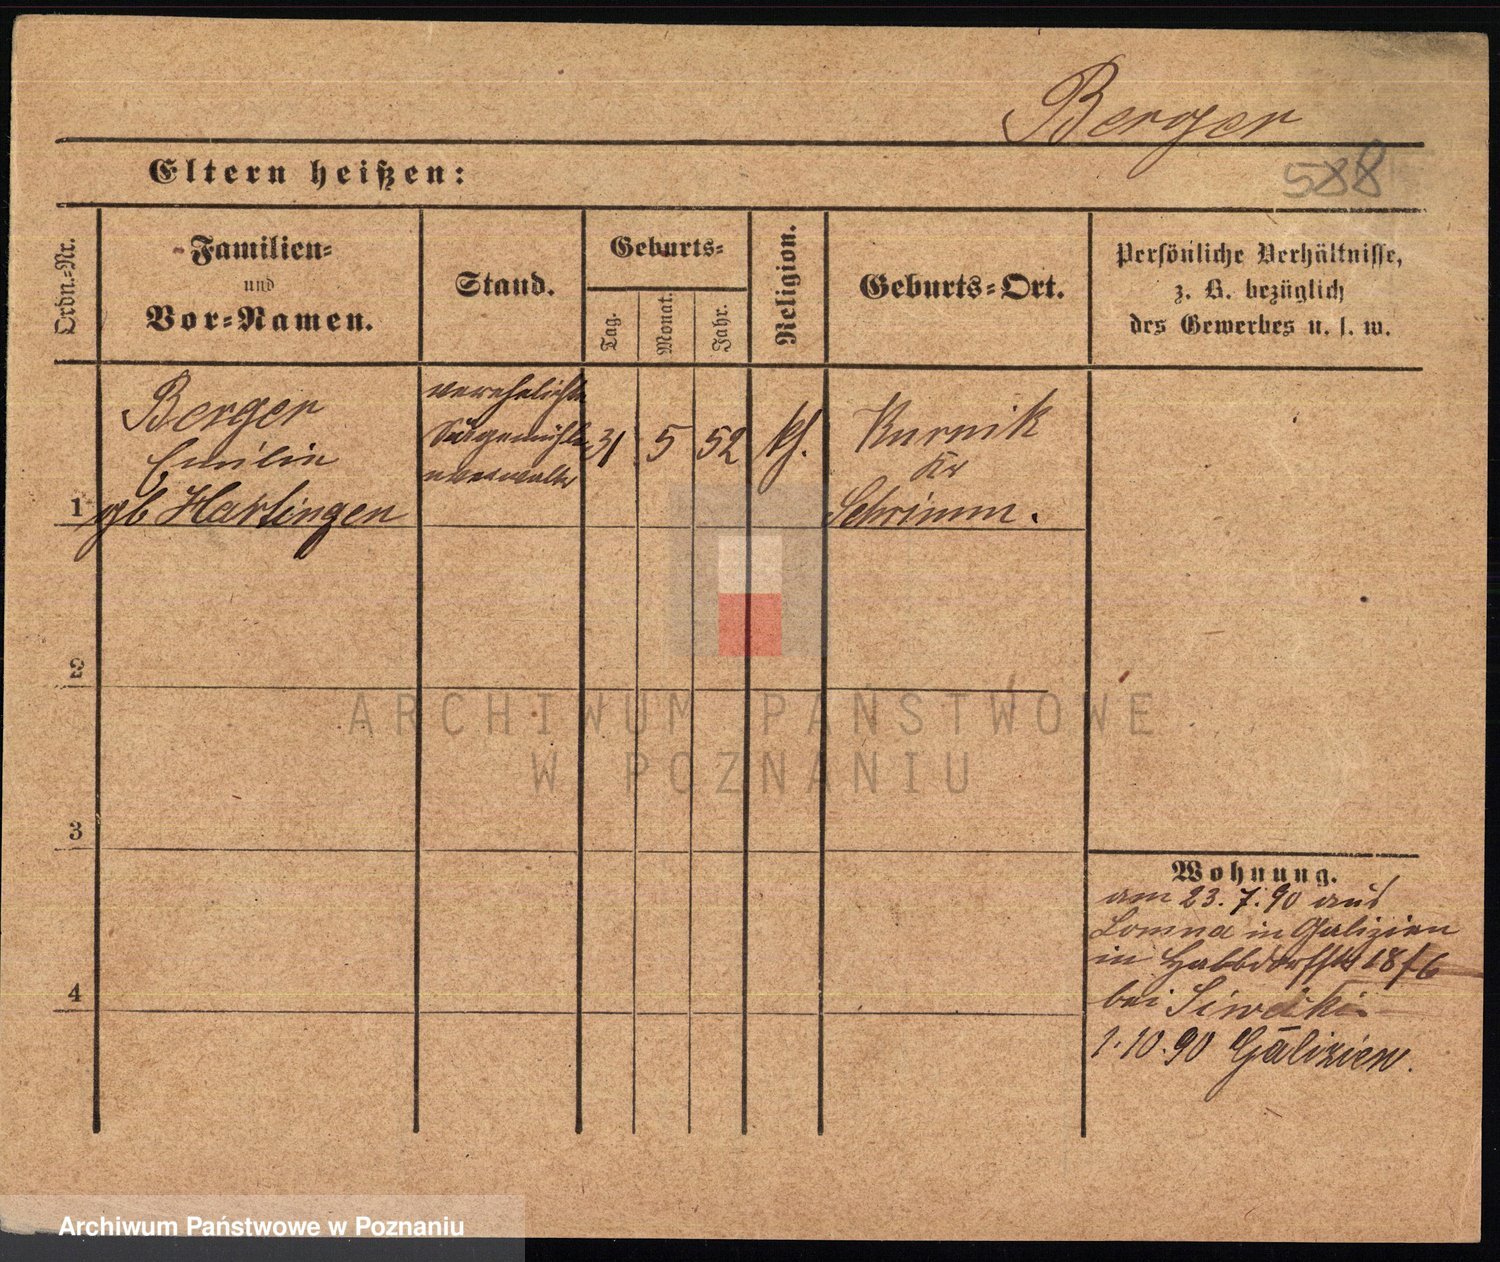 Berger
588
Eltern heißen:
Ordn.-Nr.
Familien-
und
Vor-Namen.
Stand.
Geburts-
Tag.
Monat.
Jahr.
Religion.
Geburts-Ort.
Persönliche Verhältnisse,
z. B. bezüglich
des Gewerbes u. s. w.
1
Berger
Emilie
gb Hartingen
verehelichte
Sägemühle
nverwalter
31
5
52
kf.
Kurnik
Kr
Schrimm.
2
3
4
Wohnung.
am 23.7.90 aus
Lomna in Galizien
in Halbdorfstr 18/6
bei
1.10.90 Galizien.
ARCHIWUM PAŃSTWOWE
W POZNANIU
Archiwum Państwowe w Poznaniu